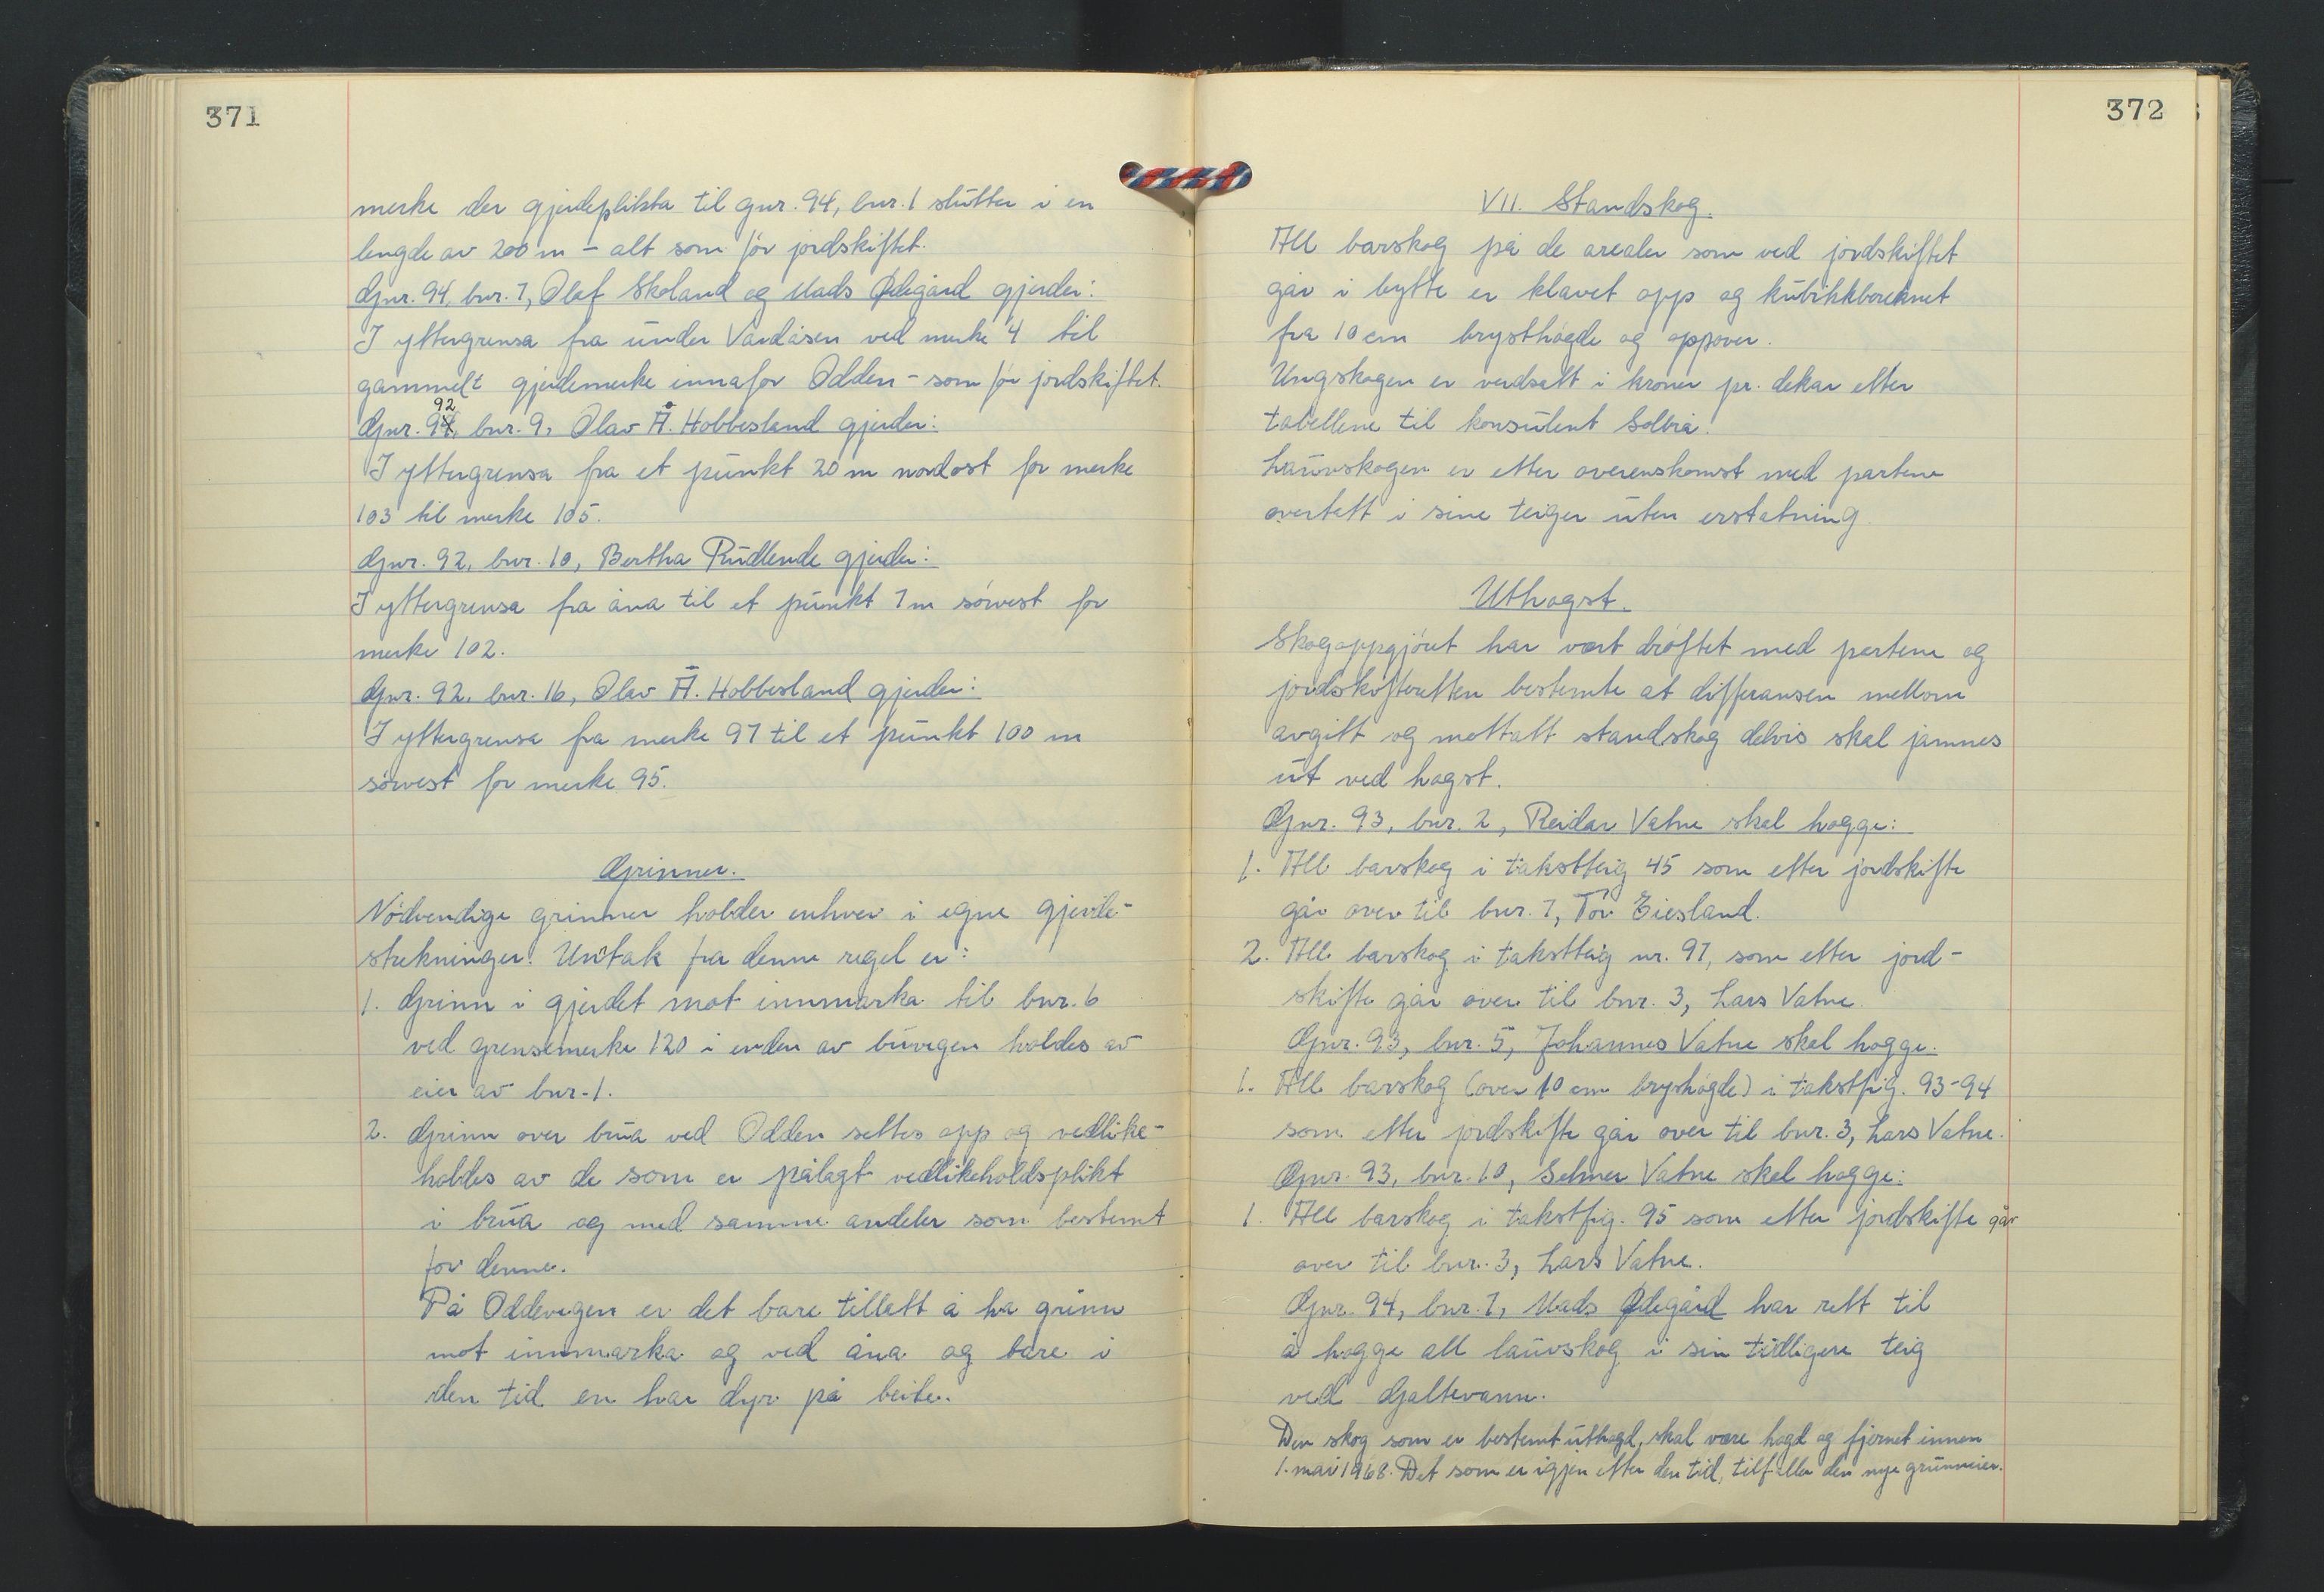 371
merke der gjerdeplikta til gnr. 94, bnr. 1 slutter i en
lengde av 200 m - alt som før jordskiftet.
Gnr. 94, bnr. 7, Olaf Skoland og Mads Ødegård gjerder:
I yttergrensa fra under Vardåsen ved merke 4 til
gammelt gjerdemerke innafor Odden - som før jordskiftet.
92
Gnr. 94, bnr. 9, Olav Å. Hobbesland gjerder:
I yttergrensa fra et punkt 20 m nordost for merke
103 til merke 105.
Gnr. 92, bnr. 10, Bertha Rudlende gjerder:
I yttergrensa fra åna til et punkt 7 m sørvest for
merke 102.
Gnr. 92, bnr. 16, Olav Å. Hobbesland gjerder:
I yttergrensa fra merke 97 til et punkt 100 m
sørvest for merke 95.
Grinner.
Nødvendige grinner holder enhver i egne gjerde-
strekninger. Untak fra denne regel er:
1. Grinn i gjerdet mot innmarka til bnr. 6
ved grensemerke 120 i enden av buvegen holdes av
eier av bnr. 1.
2. Grinn over brua ved Odden settes opp og vedlike-
holdes av de som er pålagt vedlikeholdsplikt
i brua og med samme andeler som bestemt
for denne.
På Oddevegen er det bare tillatt å ha grinn
mot innmarka og ved åna og bare i
den tid en har dyr på beite.
372
VII. Standskog.
All barskog på de arealer som ved jordskiftet
går i bytte er klavet opp og kubikkbereknet
fra 10 cm brysthøgde og oppover.
Ungskogen er verdsatt i kroner pr. dekar etter
tabellene til konsulent Solbrå.
Lauvskogen er etter overenskomst med partene
overtatt i sine teiger uten erstatning.
Uthogst.
Skogoppgjøret har vært drøftet med partene og
jordskifteretten bestemte at differansen mellom
avgitt og mottatt standskog delvis skal jamnes
ut ved hogst.
Gnr. 93, bnr. 2, Reidar Vatne skal hogge:
1. All barskog i takstteig 45 som etter jordskifte
går over til bnr. 7, Tor Eiesland.
2. All barskog i takstteig nr. 97, som etter jord-
skifte går over til bnr. 3, Lars Vatne.
Gnr. 93, bnr. 5, Johannes Vatne skal hogge.
1. All barskog (over 10 cm bryshøgde) i takstfig. 93-94
som etter jordskifte går over til bnr. 3, Lars Vatne.
Gnr. 93, bnr. 10, Selmer Vatne skal hogge:
1. All barskog i takstfig. 95 som etter jordskifte går
over til bnr. 3, Lars Vatne.
Gnr. 94, bnr. 7, Mads Ødegård har rett til
å hogge all lauvskog i sin tidligere teig
ved Galtevann.
Den skog som er bestemt uthogd, skal være hogd og fjernet innen
1. mai 1968. Det som er igjen etter den tid, tilfaller den nye grunneier.